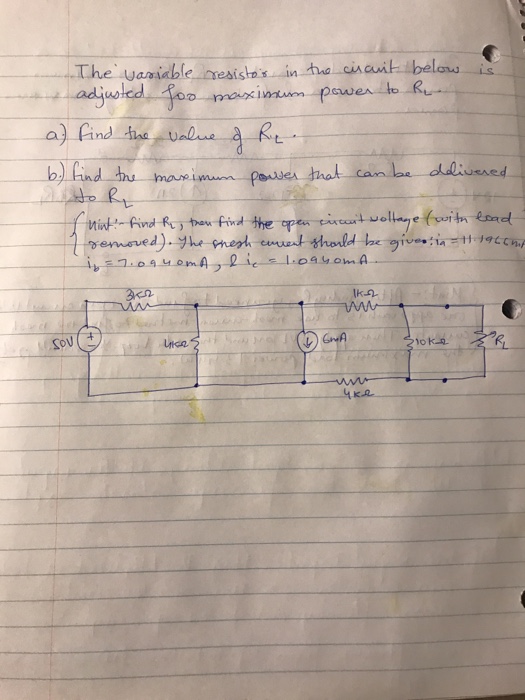 The variable resistor in the circuit below is
adjusted for maximum power to RL.
a) find the value of RL.
b) find the maximum power that can be delivered
to RL
(Hint:- find RL, then find the open circuit voltage (with load
removed). The mesh current should be given: ia =
ib = 7.0940mA, & ic = 1.0940mA
3kΩ
1kΩ
50V
+
-
4kΩ
6mA
10kΩ
RL
4kΩ